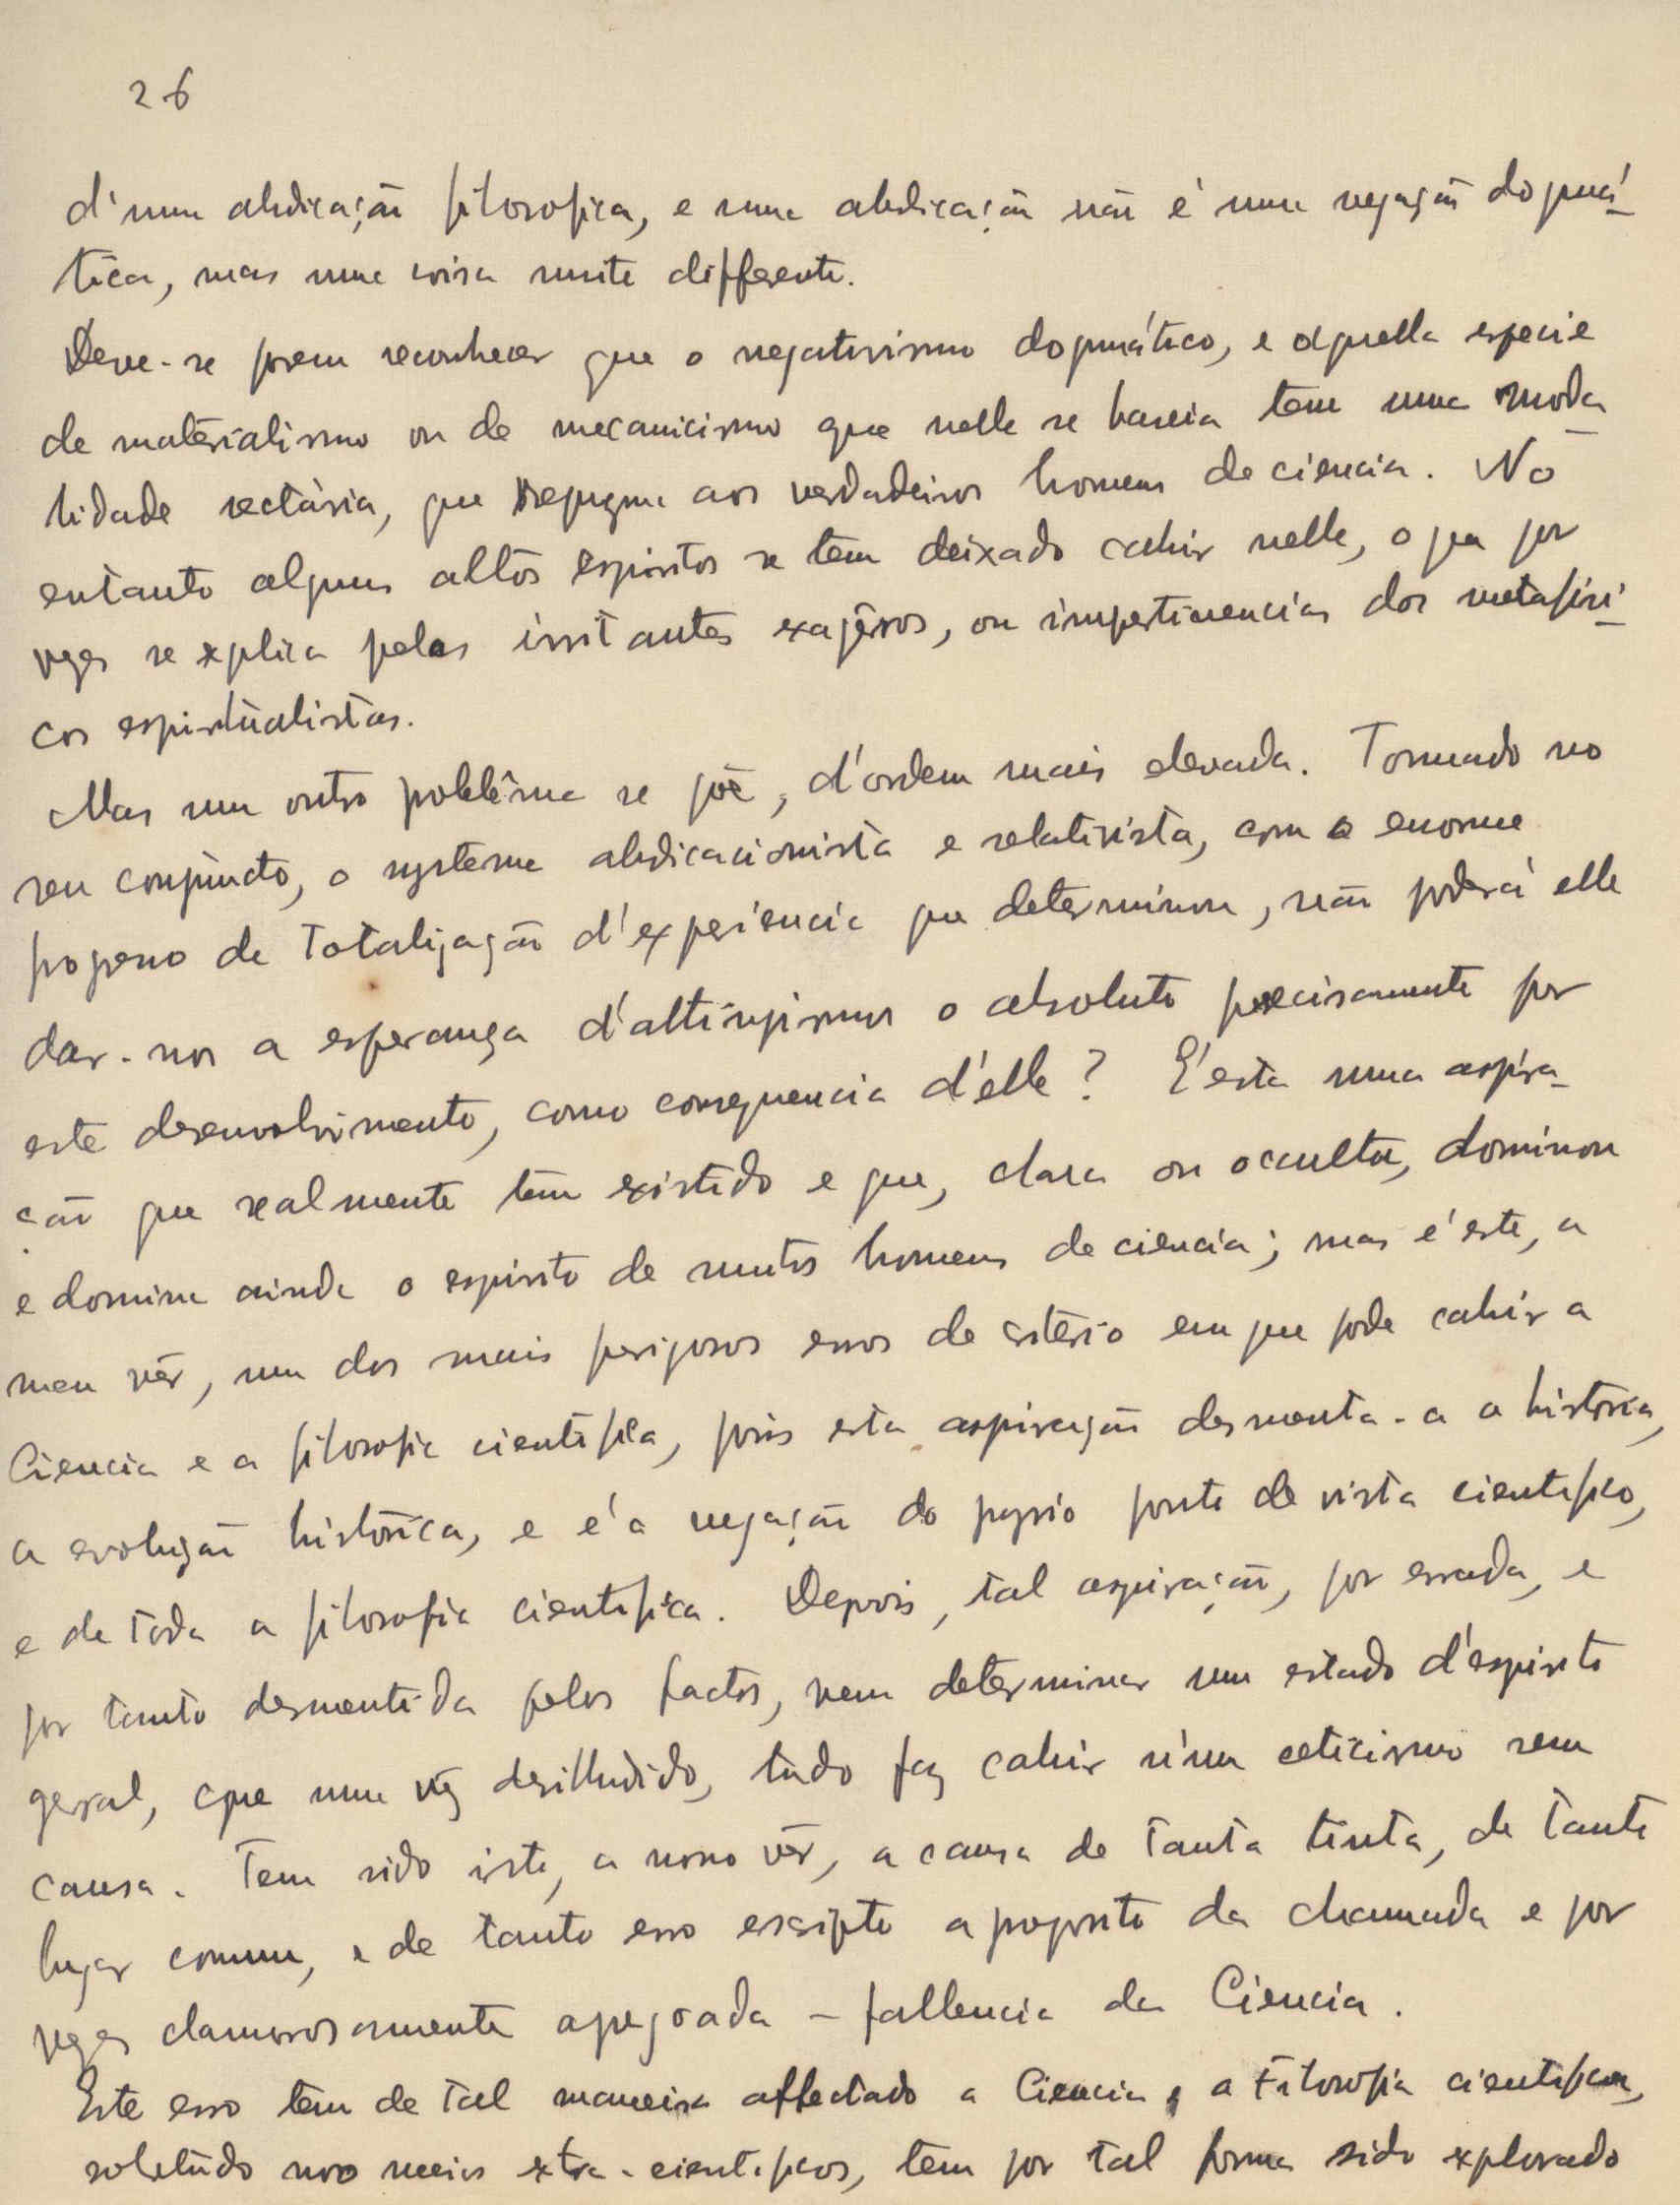 26
d'uma abdicação filosofica, e uma abdicação não é uma negação dogmá-
tica, mas uma coisa muito differente.
Deve-se porem reconhecer que o negativismo dogmático, e aquella especie
de materialismo ou de mecanicismo que nelle se baseia tem uma moda-
lidade sectària, que repugna aos verdadeiros homens de ciencia. No
entanto alguns altos espiritos se têm deixado cahir nelle, o que por
vezes se explica pelos irritantes exagêros, ou impertinencias dos metafisi-
cos espiritualistas.
Mas um outro problêma se põe, d'ordem mais elevada. Tomado no
seu conjuncto, o systema abdicacionista e relativista, com o enorme
progresso de totalização d'experiencia que determinou, não poderá elle
dar-nos a esperança d'attingirmos o absoluto precisamente por
este desenvolvimento, como consequencia d'elle? É esta uma aspira-
ção que realmente tem existido e que, clara ou occulta, dominou
e domina ainda o espirito de muitos homens de ciencia; mas é este, a
meu vêr, um dos mais perigosos erros de critério em que pode cahir a
Ciencia e a filosofia cientifica, pois esta aspiração desmente-a a história,
a evolução histórica, e é a negação do proprio ponto de vista cientifico,
e de toda a filosofia cientifica. Depois, tal aspiração, por errada, e
por tanto desmentida pelos factos, vem determinar um estado d'espirito
geral, que uma vêz desilludido, tudo faz cahir n'um ceticismo sem
causa. Tem sido isto, a nosso vêr, a causa de tanta tinta, de tanto
lugar comum, e de tanto erro escripto a proposito da chamada e por
vezes clamorosamente apregoada – fallencia da Ciencia.
Este erro tem de tal maneira affectado a Ciencia e a Filosofia cientifica,
sobretudo nos meios extra-cientificos, tem por tal forma sido explorado